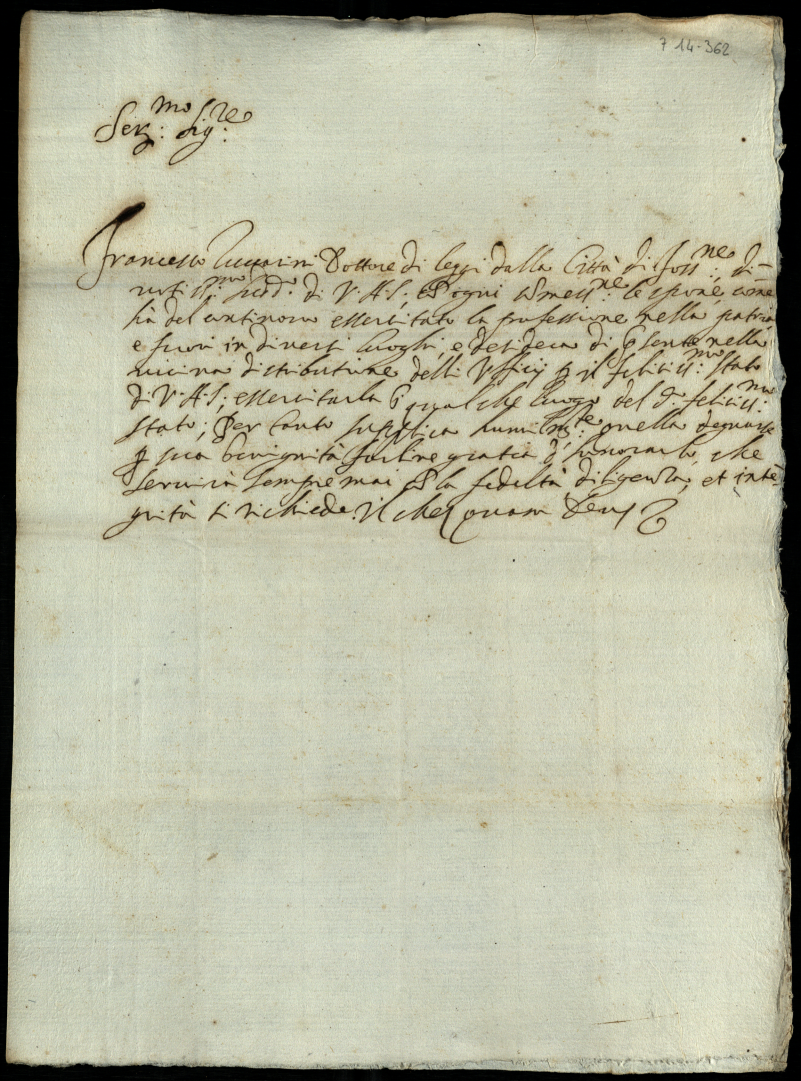 7 14-362
Ser.mo Sig.re
Francesco Dottore di leggi dalla Città di Foss.ne di-
votiss.mo sudd.o di V.A.S, ogni le espone, come
hà del continovo essercitato la professione nella patria,
e fuori in diversi luoghi, e desidera di p̄sente nella
vicina distributione delli Ufficij p il feliciss.mo stato
di V.A.S; essercitarla qualche luogo del d.o feliciss.mo
stato; Per tanto supplica humilm.te quella degnarse
p sua benignità farline gratia d'honorarlo, che
servirà sempre mai la fedeltà, diligenza, et inte-
grità si richiede. Il che quam Deus